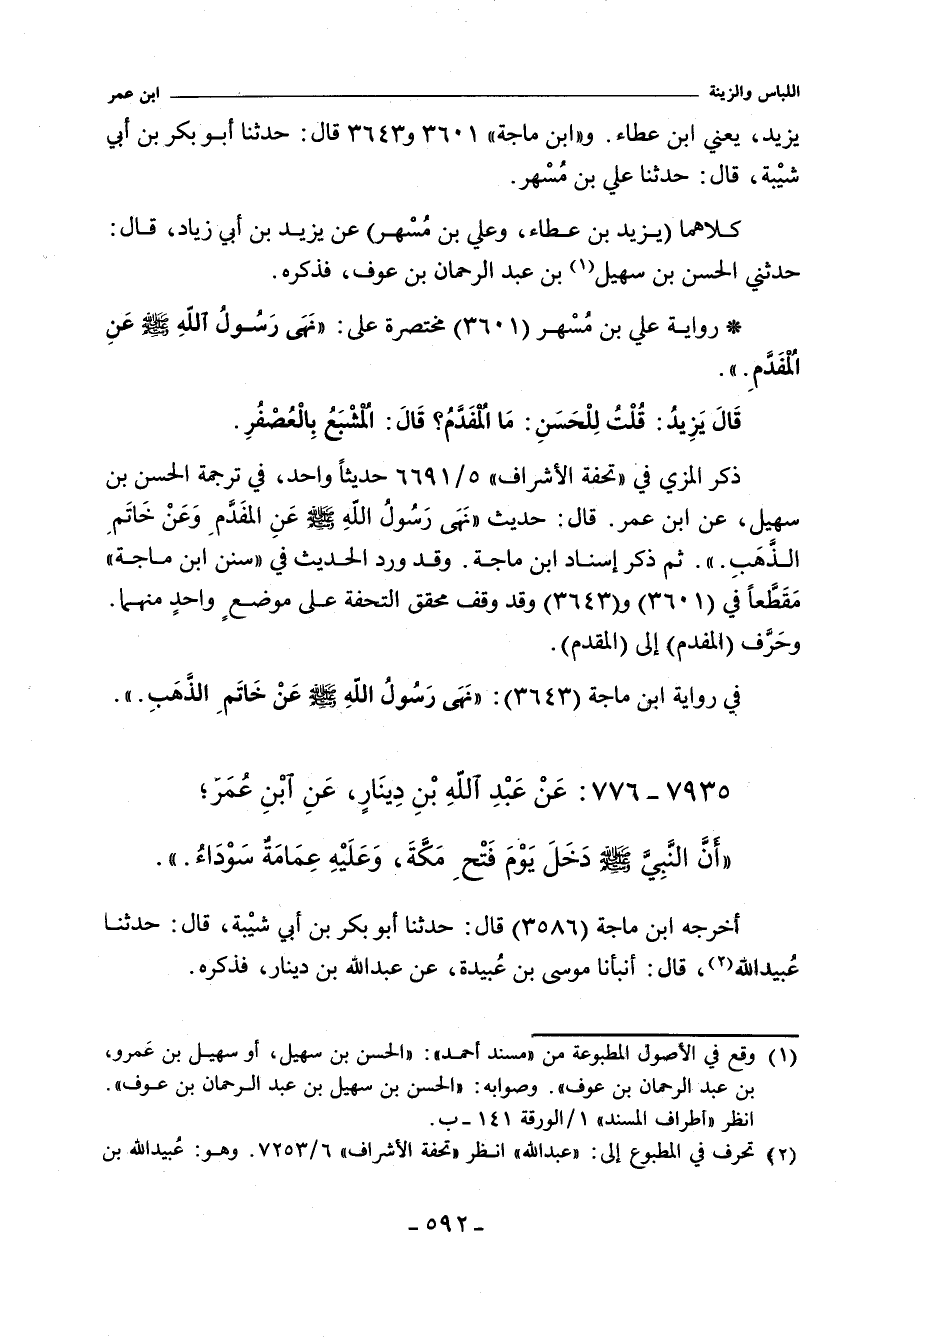 اللباس والزينة ـــــــــــــــــــــ ابن عمر
يزيد، يعني ابن عطاء. و«ابن ماجة» ٣٦٠١ و٣٦٤٣ قال: حدثنا أبو بكر بن أبي
شيْبة، قال: حدثنا علي بن مُسْهر.
كلاهما (يزيد بن عطاء، وعلي بن مُسْهر) عن يزيد بن أبي زياد، قال:
حدثني الحسن بن سهيل(١) بن عبد الرحمان بن عوف، فذكره.
* رواية علي بن مُسْهر (٣٦٠١) مختصرة على: «نَهَى رَسُولُ ٱللَّهِ ﷺ عَنِ
ٱلْمُفَدَّمِ.».
قَالَ يَزِيدُ: قُلْتُ لِلْحَسَنِ: مَا ٱلْمُفَدَّمُ؟ قَالَ: ٱلْمُشْبَعُ بِالْعُصْفُرِ.
ذكر المزي في «تحفة الأشراف» ٦٦٩١/٥ حديثاً واحد، في ترجمة الحسن بن
سهيل، عن ابن عمر. قال: حديث «نَهَى رَسُولُ اللَّهِ ﷺ عَنِ المفَدَّمِ وَعَنْ خَاتَمِ
الذَّهَبِ.». ثم ذكر إسناد ابن ماجة. وقد ورد الحديث في «سنن ابن ماجة»
مَقَطَّعاً في (٣٦٠١) و(٣٦٤٣) وقد وقف محقق التحفة على موضعٍ واحدٍ منهما.
وحَرَّف (المفدم) إلى (المقدم).
في رواية ابن ماجة (٣٦٤٣): «نَهَى رَسُولُ اللَّهِ ﷺ عَنْ خَاتَمِ الذَّهَبِ.».
٧٩٣٥ ـ ٧٧٦: عَنْ عَبْدِ ٱللَّهِ بْنِ دِينَارٍ، عَنِ ٱبْنِ عُمَرَ؛
«أَنَّ النَّبِيَّ ﷺ دَخَلَ يَوْمَ فَتْحِ مَكَّةَ، وَعَلَيْهِ عِمَامَةٌ سَوْدَاءُ.».
أخرجه ابن ماجة (٣٥٨٦) قال: حدثنا أبو بكر بن أبي شيْبة، قال: حدثنا
عُبيدالله(٢)، قال: أنبأنا موسى بن عُبيدة، عن عبدالله بن دينار، فذكره.
(١) وقع في الأصول المطبوعة من «مسند أحمد»: «الحسن بن سهيل، أو سهيل بن عَمرو،
بن عبد الرحمان بن عوف». وصوابه: «الحسن بن سهيل بن عبد الرحمان بن عوف».
انظر «أطراف المسند» ١/الورقة ١٤١ ـ ب.
(٢) تحرف في المطبوع إلى: «عبدالله» انظر «تحفة الأشراف» ٧٢٥٣/٦. وهو: عُبيدالله بن
ـ ٥٩٢ ـ